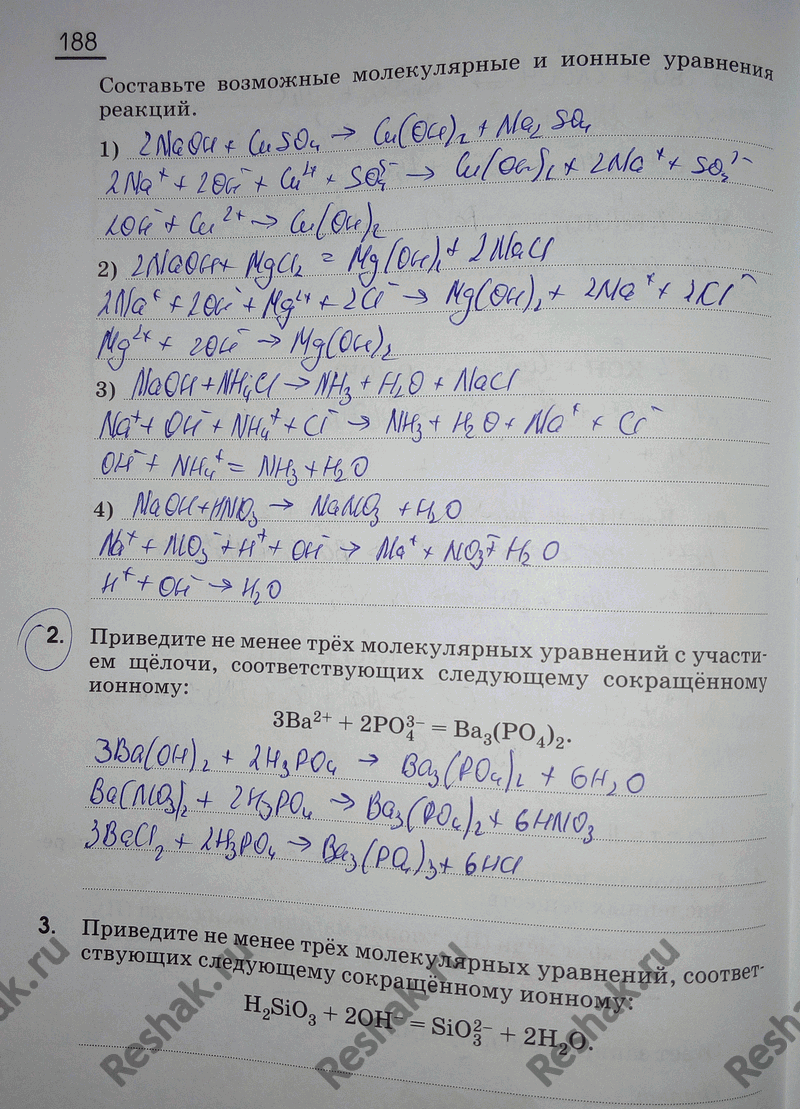 188
Составьте возможные молекулярные и ионные уравнения
реакций.
1) 2NaOH + CuSO₄ → Cu(OH)₂ + Na₂SO₄
2Na⁺ + 2OH⁻ + Cu²⁺ + SO₄²⁻ → Cu(OH)₂ + 2Na⁺ + SO₄²⁻
2OH⁻ + Cu²⁺ → Cu(OH)₂
2) 2NaOH + MgCl₂ = Mg(OH)₂ + 2NaCl
2Na⁺ + 2OH⁻ + Mg²⁺ + 2Cl⁻ → Mg(OH)₂ + 2Na⁺ + 2Cl⁻
Mg²⁺ + 2OH⁻ → Mg(OH)₂
3) NaOH + NH₄Cl → NH₃ + H₂O + NaCl
Na⁺ + OH⁻ + NH₄⁺ + Cl⁻ → NH₃ + H₂O + Na⁺ + Cl⁻
OH⁻ + NH₄⁺ = NH₃ + H₂O
4) NaOH + HNO₃ → NaNO₃ + H₂O
Na⁺ + NO₃⁻ + H⁺ + OH⁻ → Na⁺ + NO₃⁻ + H₂O
H⁺ + OH⁻ → H₂O
2. Приведите не менее трёх молекулярных уравнений с участи-
ем щёлочи, соответствующих следующему сокращённому
ионному:
3Ba²⁺ + 2PO₄³⁻ = Ba₃(PO₄)₂.
3Ba(OH)₂ + 2H₃PO₄ → Ba₃(PO₄)₂ + 6H₂O
Ba(NO₃)₂ + 2H₃PO₄ → Ba₃(PO₄)₂ + 6HNO₃
3BaCl₂ + 2H₃PO₄ → Ba₃(PO₄)₃ + 6HCl
3. Приведите не менее трёх молекулярных уравнений, соответ-
ствующих следующему сокращённому ионному:
H₂SiO₃ + 2OH⁻ = SiO₃²⁻ + 2H₂O.
Reshak.ru
Reshak.ru
Reshak.ru